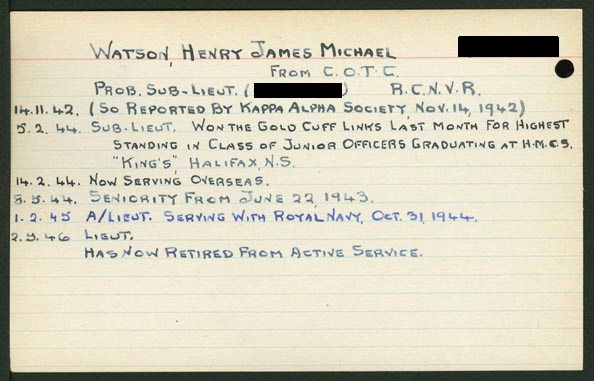 WATSON, HENRY JAMES MICHAEL
FROM C.O.T.C.
PROB. SUB-LIEUT. ( ) R.C.N.V.R.
14.11.42. (SO REPORTED BY KAPPA ALPHA SOCIETY, NOV. 14, 1942)
5.2.44. SUB-LIEUT. WON THE GOLD CUFF LINKS LAST MONTH FOR HIGHEST
STANDING IN CLASS OF JUNIOR OFFICERS GRADUATING AT H.M.C.S.
"KING'S", HALIFAX, N.S.
14.2.44. NOW SERVING OVERSEAS.
8.5.44. SENIORITY FROM JUNE 22, 1943.
1.2.45 A/LIEUT. SERVING WITH ROYAL NAVY, OCT. 31, 1944.
2.5.46 LIEUT.
HAS NOW RETIRED FROM ACTIVE SERVICE.